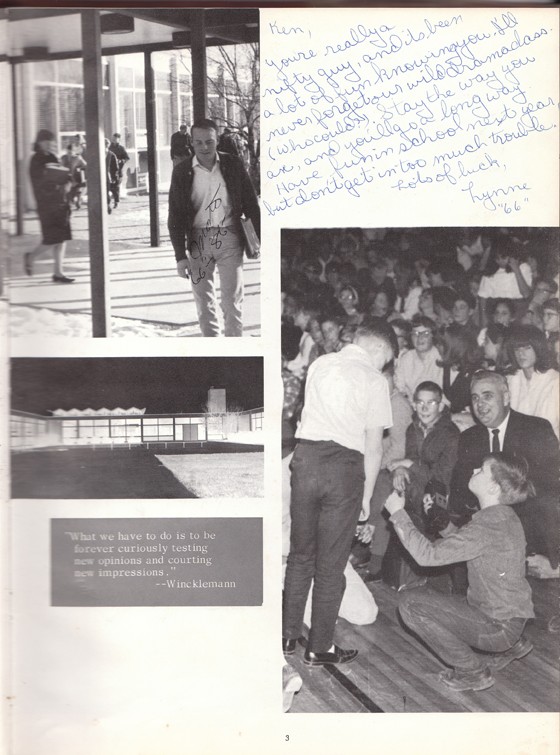 Ken,
you're really a
nifty guy, and it's been
a lot of fun knowing you. I'll
never forget our wild drama class.
(who could?). Stay the way you
are, and you'll go a long way
Have fun in school next year
but don't get in too much trouble.
Lots of luck,
Lynne
"66"
"What we have to do is to be
forever curiously testing
new opinions and courting
new impressions."
--Wincklemann
3